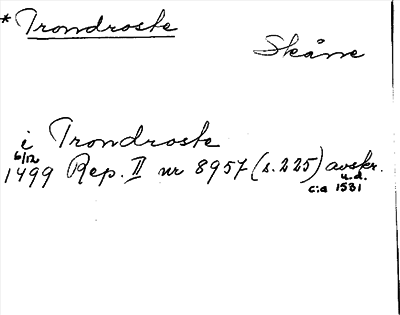 *Trondroste
Skåne
i Trondroste
6/12
1499 Rep. II nr 8957 (s. 225) avskr.
u.d.
c:a 1531